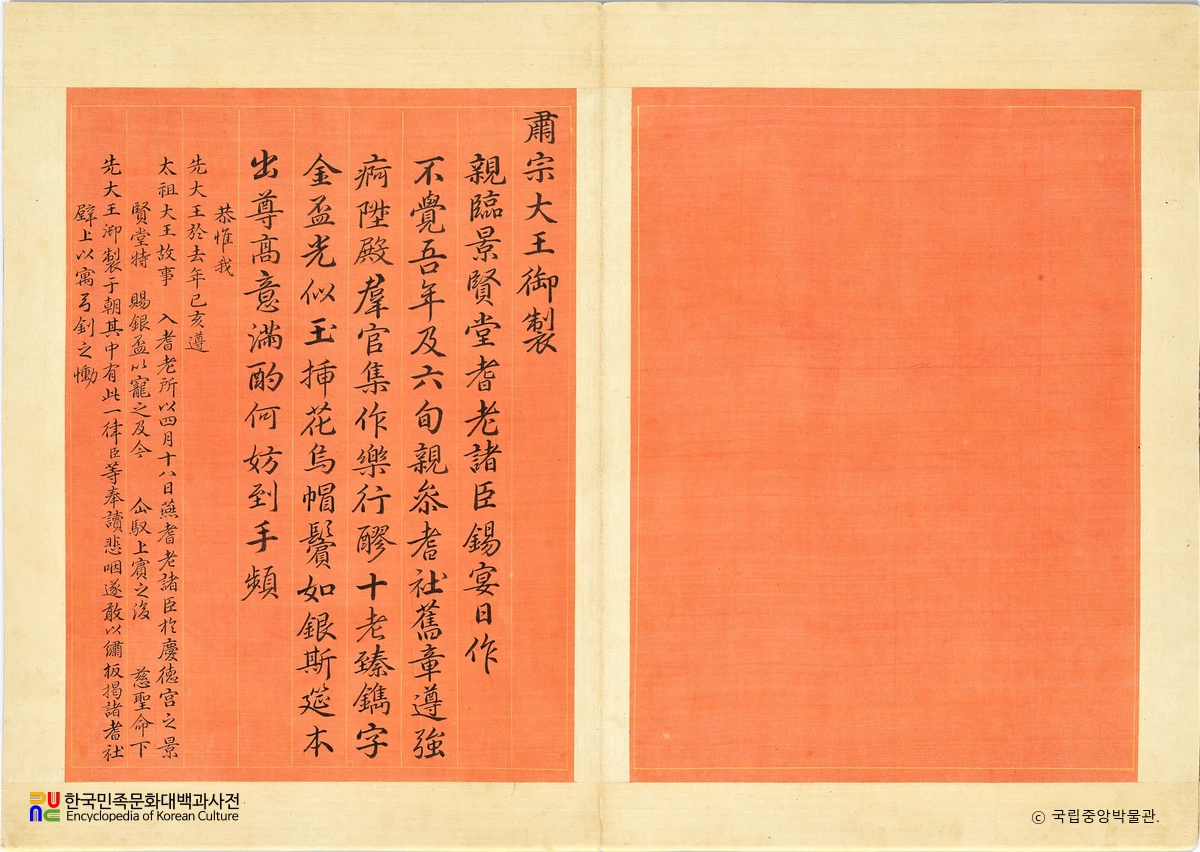 肅宗大王御製
親臨景賢堂耆老諸臣錫宴日作
不覺吾年及六旬親叅耆社舊章遵強
痾陞殿羣官集作樂行醪十老臻鐫字
金盃光似玉揷花烏帽鬢如銀斯筵本
出尊高意滿酌何妨到手頻
恭惟我
先大王於去年己亥遵
太祖大王故事 入耆老所以四月十八日燕耆老諸臣於慶德宮之景
賢堂特 賜銀盃以寵之及今 仙馭上賓之後 慈聖命下
先大王御製于朝其中有此一律臣等奉讀悲咽遂敢以繡板揭諸耆社
壁上以寓弓釖之慟
한국민족문화대백과사전
Encyclopedia of Korean Culture
ⓒ 국립중앙박물관.